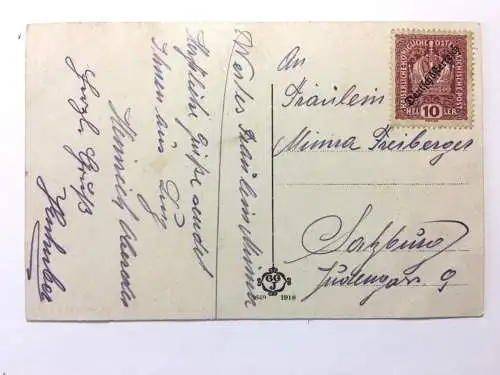 Wertes Fräulein Minna
Herzliche Grüße sendet
Ihnen aus
Heinrich
Herzl. Gruß
An
Fräulein
Minna Freiberger
Salzburg
Judengasse 9
KAISERLICHE KÖNIGLICHE ÖSTERREICHISCHE POST
Deutschösterreich
HELLER
10
GG
J
1918